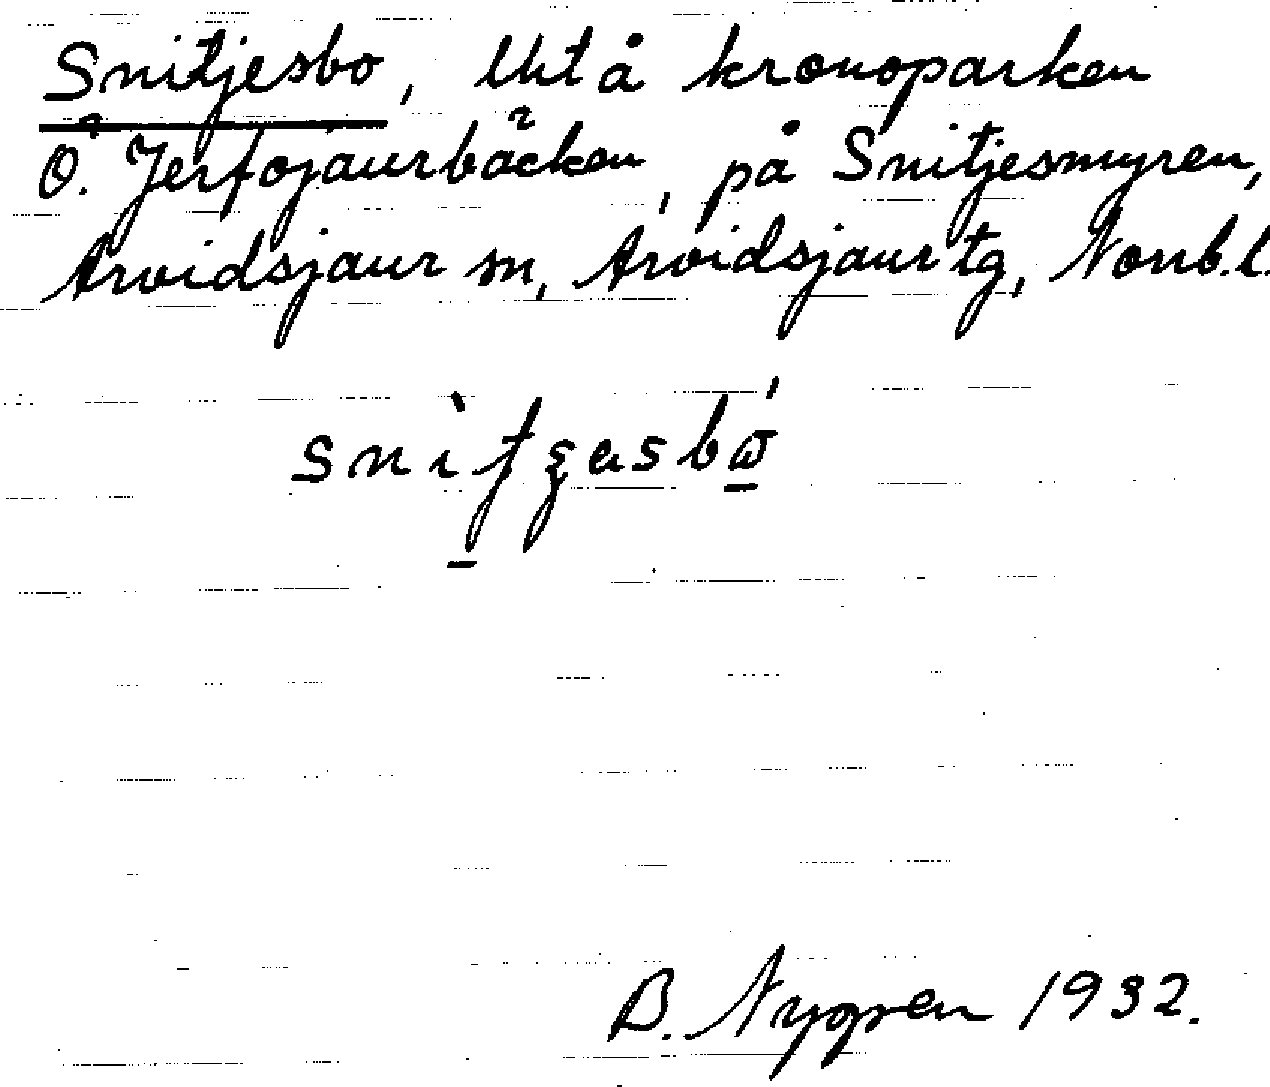 Snitjesbo, Uhtå kronoparken
Ö. Jerfojaurbäcken, på Snitjesmyren,
Arvidsjaur sn, Arvidsjaur tg, Norrb.l.
B. Nygren 1932.